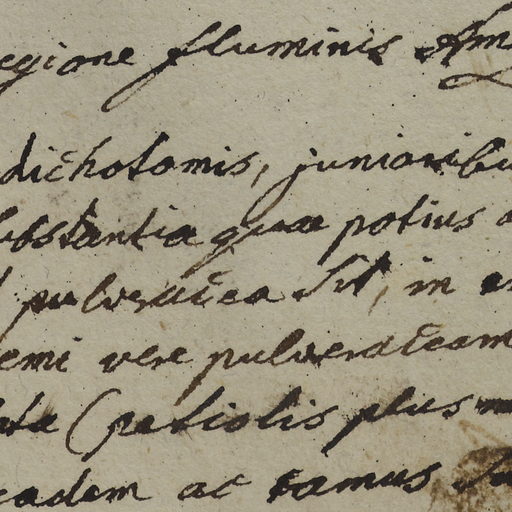 egione fluminis Am
dichotomis, junioribu
ubstantia quae potius
pulveracea sit, in
emi vere pulveraceam
(petiolis plus
eadem ac ramus